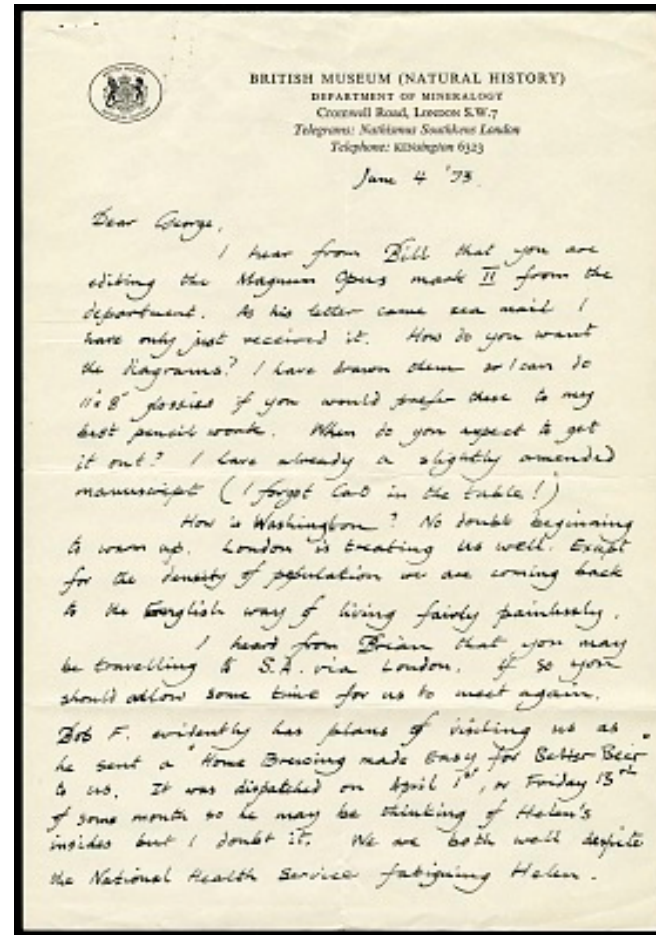 BRITISH MUSEUM (NATURAL HISTORY)
DEPARTMENT OF MINERALOGY
Cromwell Road, LONDON S.W.7
Telegrams: Nathismus Southkens London
Telephone: KENsington 6323
June 4 '73.
Dear George,
I hear from Bill that you are
editing the Magnum Opus mark II from the
department. As his letter came sea mail I
have only just received it. How do you want
the diagrams? I have drawn them so I can do
11"x 8" glossies if you would prefer these to my
best pencil work. When do you expect to get
it out? I have already a slightly amended
manuscript (I forgot CaO in the table!)
How is Washington? No doubt beginning
to warm up. London is treating us well. Exept
for the density of population we are coming back
to the English way of living fairly painlessly.
I heard from Brian that you may
be travelling to S.A. via London. If so you
should allow some time for us to meet again.
Bob F. evidently has plans of visiting us as
he sent a "Home Brewing made Easy for Better Beer"
to us. It was dispatched on April 1st, or Friday 13th
of some month so he may be thinking of Helen's
insides but I doubt it. We are both well despite
the National Health Service fatiguing Helen.